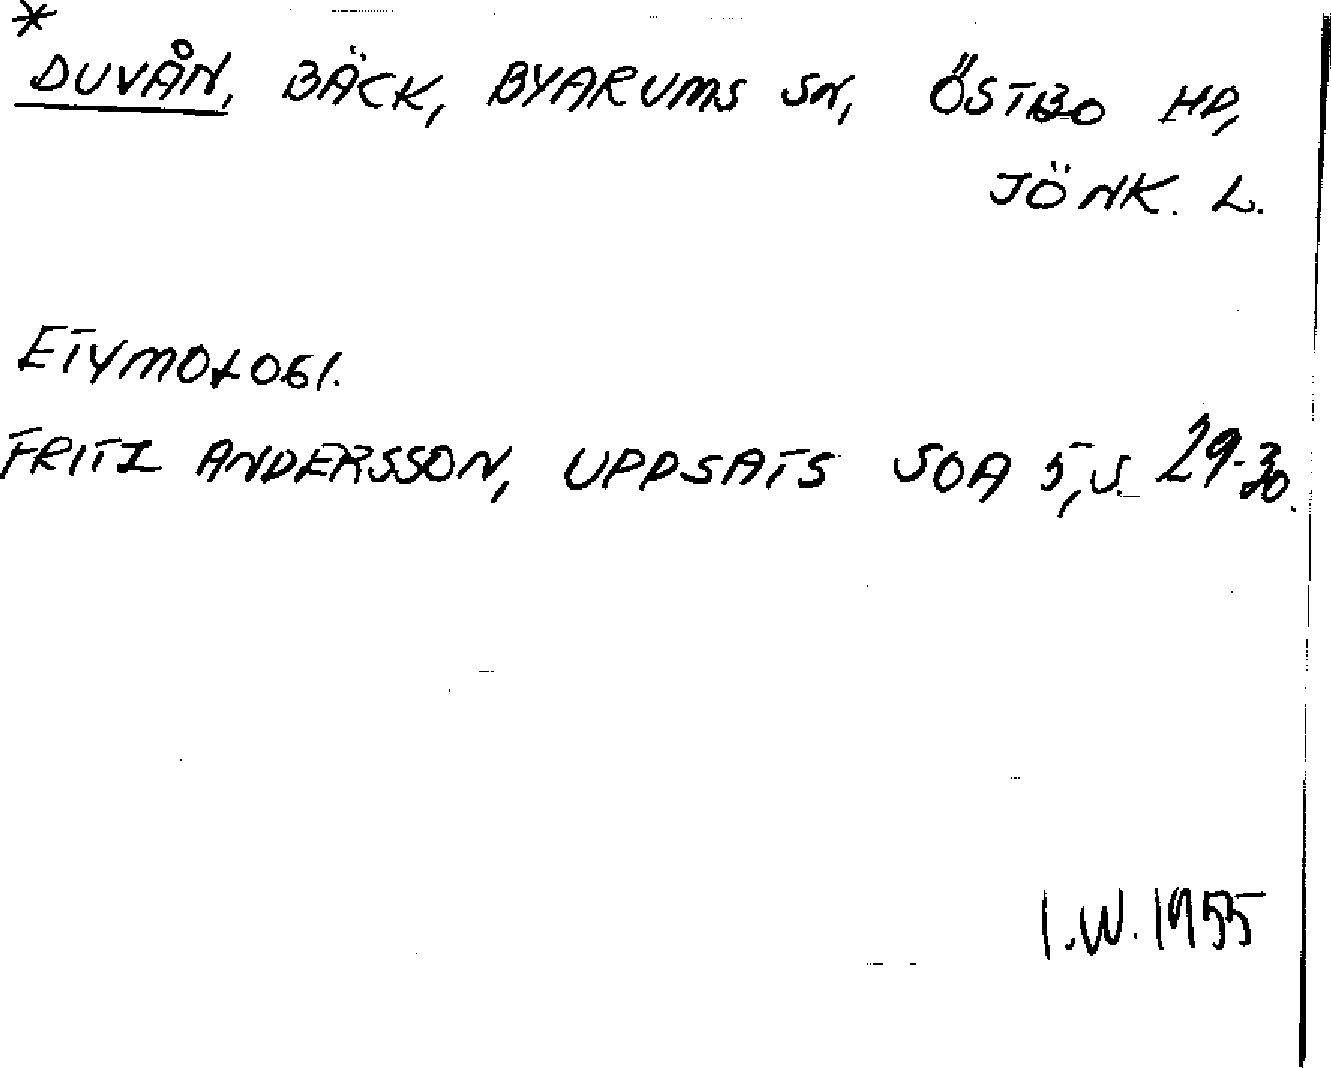 *
DUVÅN, BÄCK, BYARUMS SN, ÖSTBO HD,
JÖNK. L.
ETYMOLOGI.
FRITZ ANDERSSON, UPPSATS SOA 5, S. 29-30.
I.W. 1955